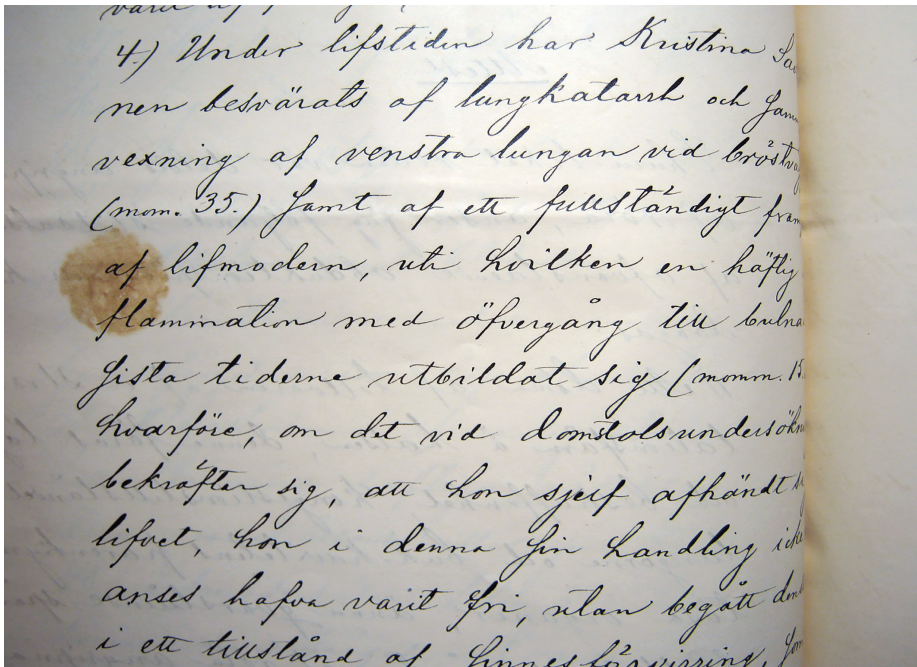 4.) Under lifstiden har Kristina
nen besvärats af lungkatarrh och
vexning af venstra lungan vid
(mom. 35.) samt af ett fullständigt
af lifmodern, uti hvilken en häftig
flammation med öfvergång till
sista tiderne utbildat sig (momm. 15.
hvarföre, om det vid
bekräftar sig, att hon sjelf afhändt
lifvet, hon i denna sin handling
anses hafva varit fri, utan begått
i ett tillstånd af sinnesförvirring,